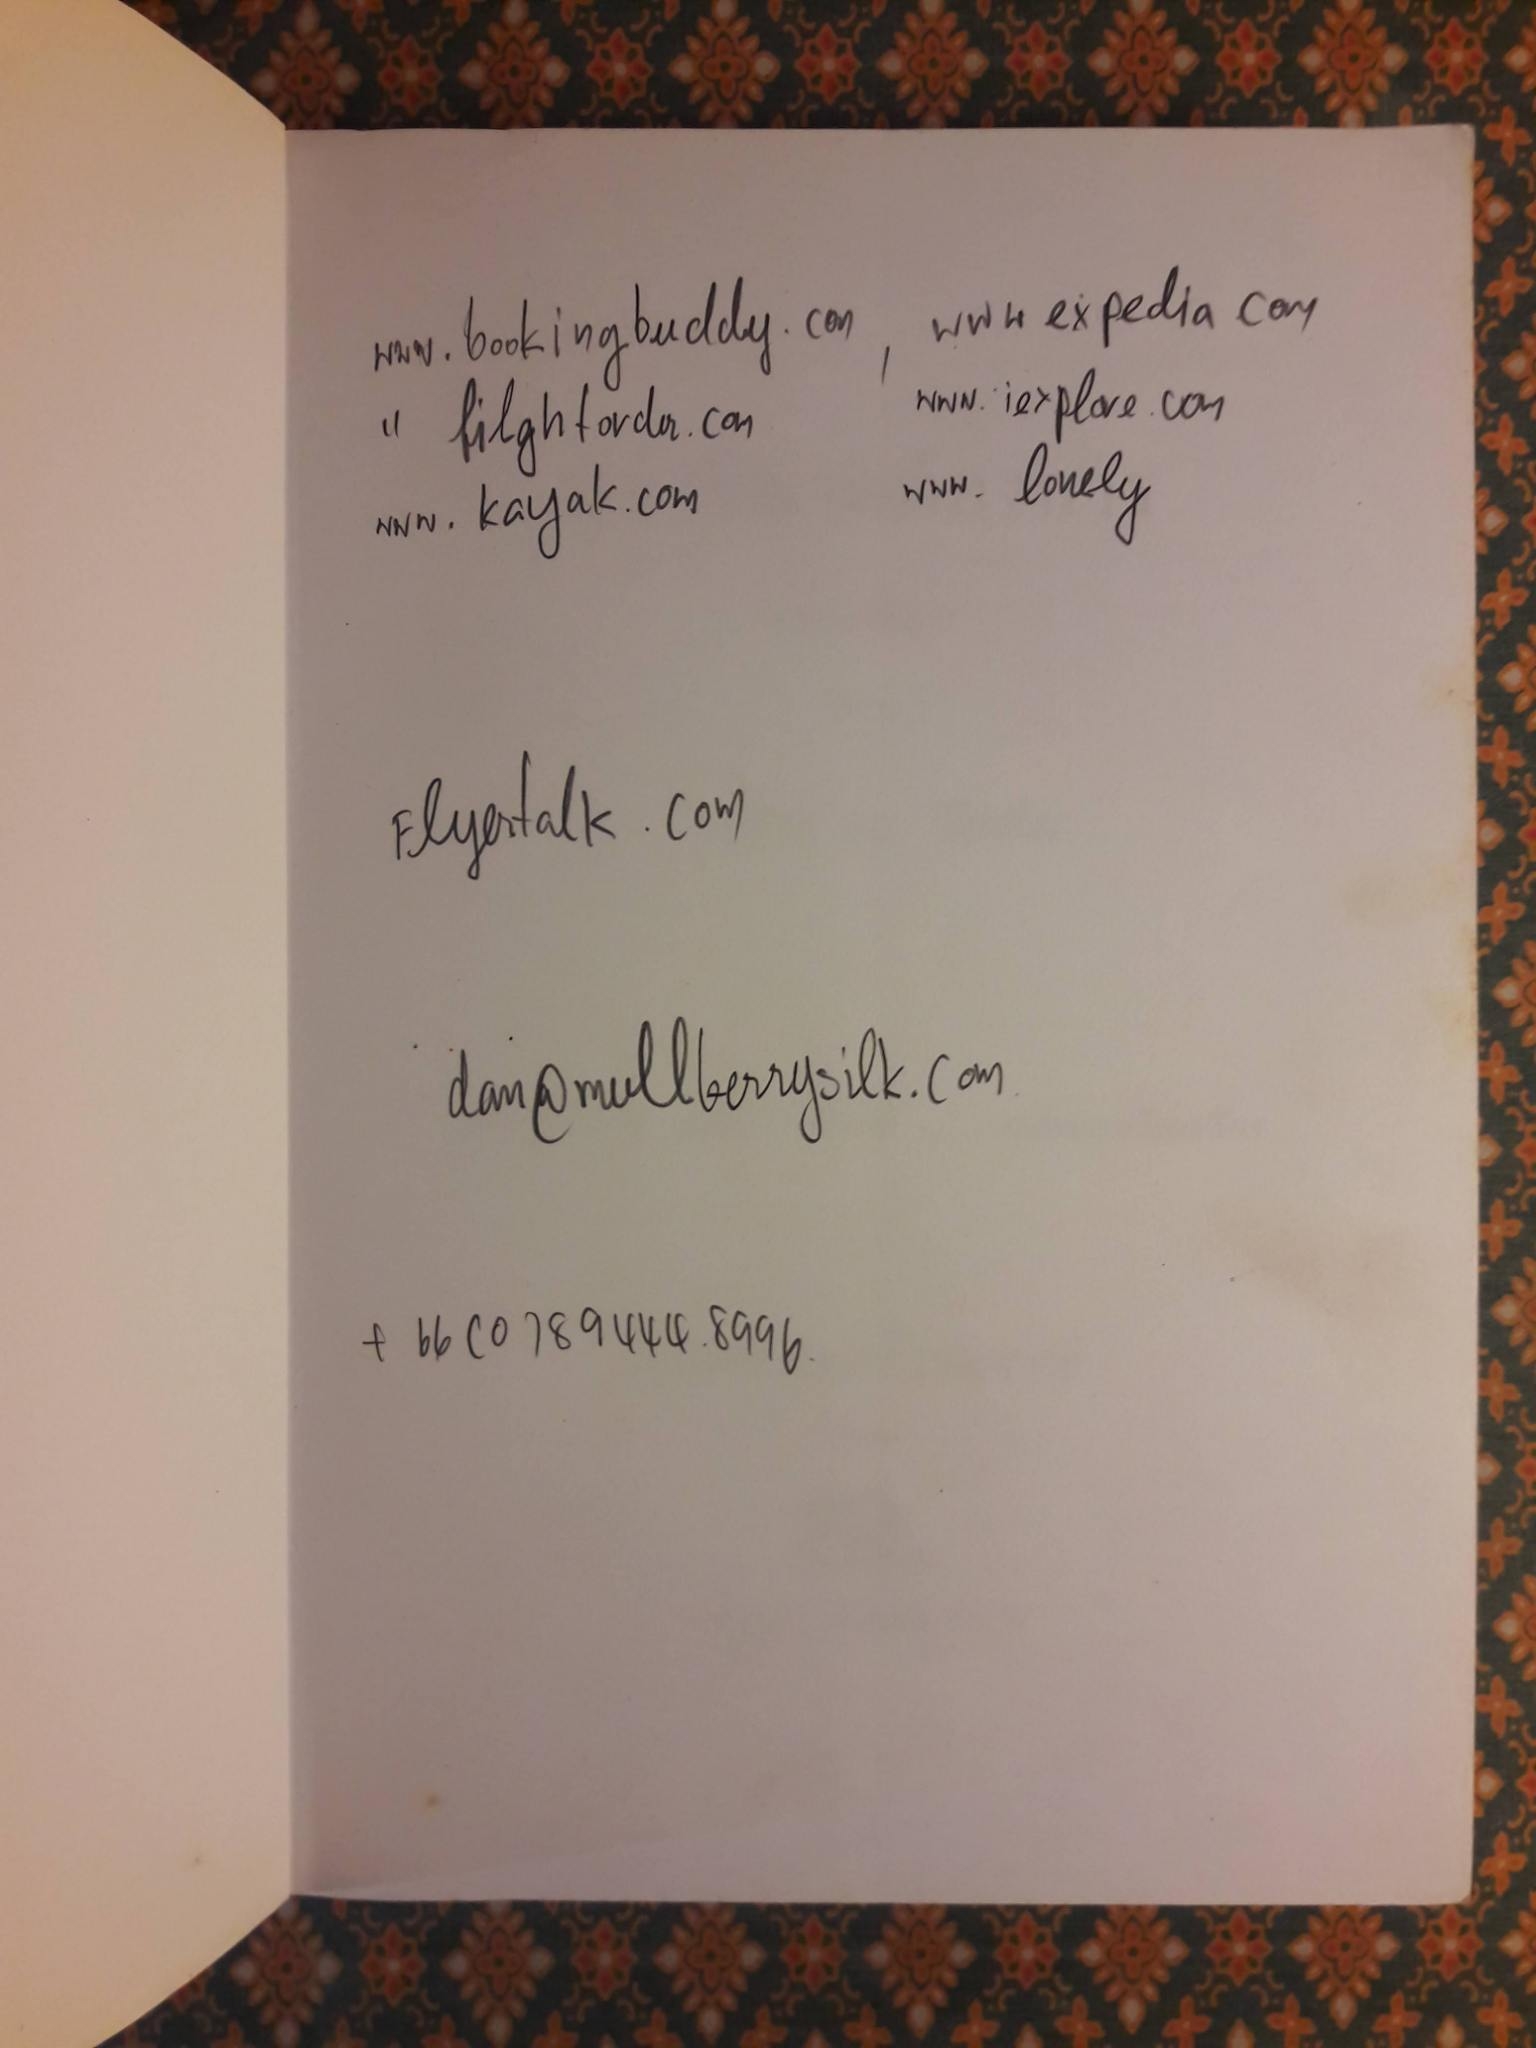 www.bookingbuddy.com, www expedia com
" filghtorder.com www.iexplore.com
www.kayak.com www. lonely
Flyertalk.com
dan@mullberrysilk.com
+ 66 (0789444.8996.